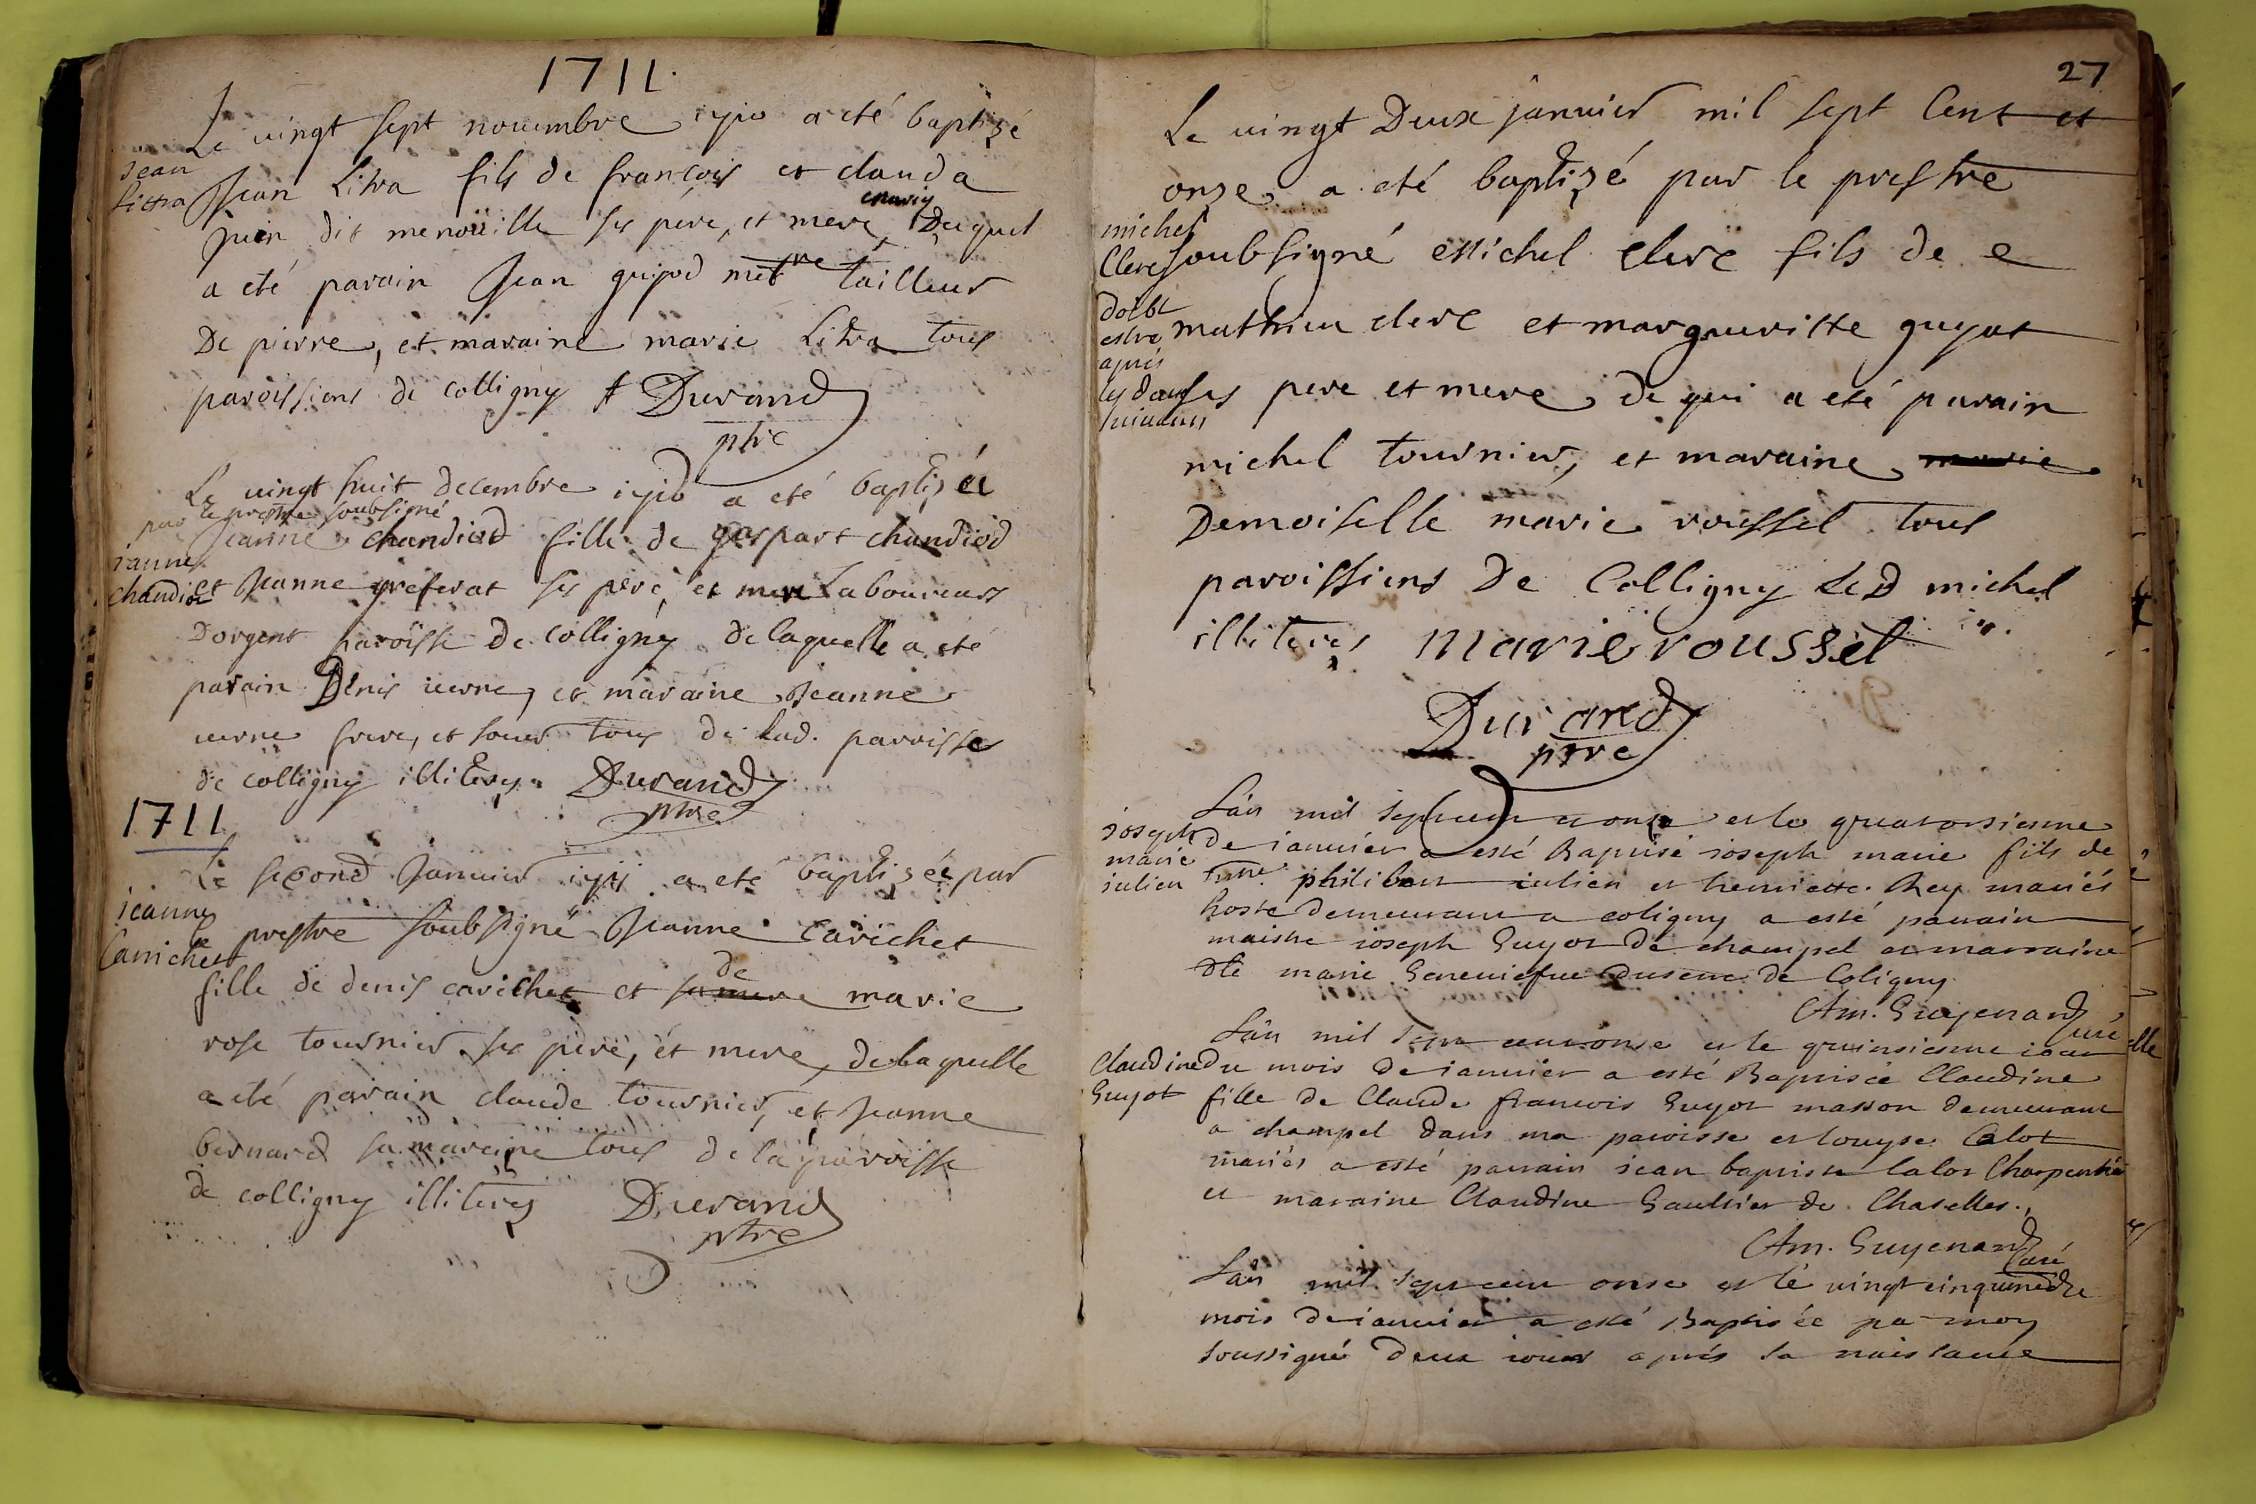 1711.
Le vingt sept nouembre 1710 a eté baptizé
Jean
Litra
Jean Litra fils de francois et clauda
mariez
juin dit menoüille ses pere, et mere, Duquel
a eté parain Jean guipod met^re tailleur
De pierre, et maraine marie Litra tous
paroissiens de colligny Durand
ptre
Le vingt huit decembre 1710 a eté baptizéé
par le prestre soubsigné
Jeanne chandiod fille de gaspart chandiod
ianne
chandiod
et Jeanne greferat ses pere, et mere Laboureurs
Dorgent paroisse de colligny de laquelle a eté
parain Denis uerne, et maraine Jeanne
uerne frere, et soeur tous de lad. paroisse
de colligny illiterez. Durand
ptre
1711
Le second Januier 1711 a eté baptizéé par
ieanne
Carrichet
le prestre soubsigné Jeanne carichet
fille de denis carichet et sa mere de marie
rose tournier ses pere, et mere, de laquelle
a eté parain claude tournier, et Jeanne
bernard sa maraine tous de la paroisse
de colligny illiterez Durand
ptre
27
Le vingt Deux januier mil sept Cent et
onze, a eté baptizé par le prestre
michel
Clerc
soubsigné Michel clerc fils de
doibt
estre
apres
les deux
suiuans
mathieu clerc et margueritte guyot
ses pere et mere, de qui a eté parain
michel tournier, et maraine, marie
Demoiselle marie roussel tous
paroissiens De Colligny Led michel
illiterez marie roussel
Durand
ptre
L'an mil sept cent et onze et le quatorsiesme
joseph
marie
iulien
de januier a esté Baptisé joseph marie fils de
philibert iulien et henriette Rey mariés
hoste demeurant a coligny a esté parrain
maistre joseph Guyot de champel et marraine
dlle marie Geneuiefue de Coligny
Am. Guyenard
curé
L'an mil sept cent onse et le quinsiesme iour
Claudine
Guyot
du mois de ianuier a esté Baptisée Claudine
fille de Claude francois Guyot masson demeurant
a champel dans ma paroisse et louyse Calot
mariés a esté parrain jean baptiste lalot Charpentier
et maraine Claudine Gaultier de Chaselles.
Am. Guyenard
Curé
L'an mil sept cent onse et le vingt cinquiesme du
mois de ianuier a esté Baptisée par moy
soussigné deux iours apres sa naissance